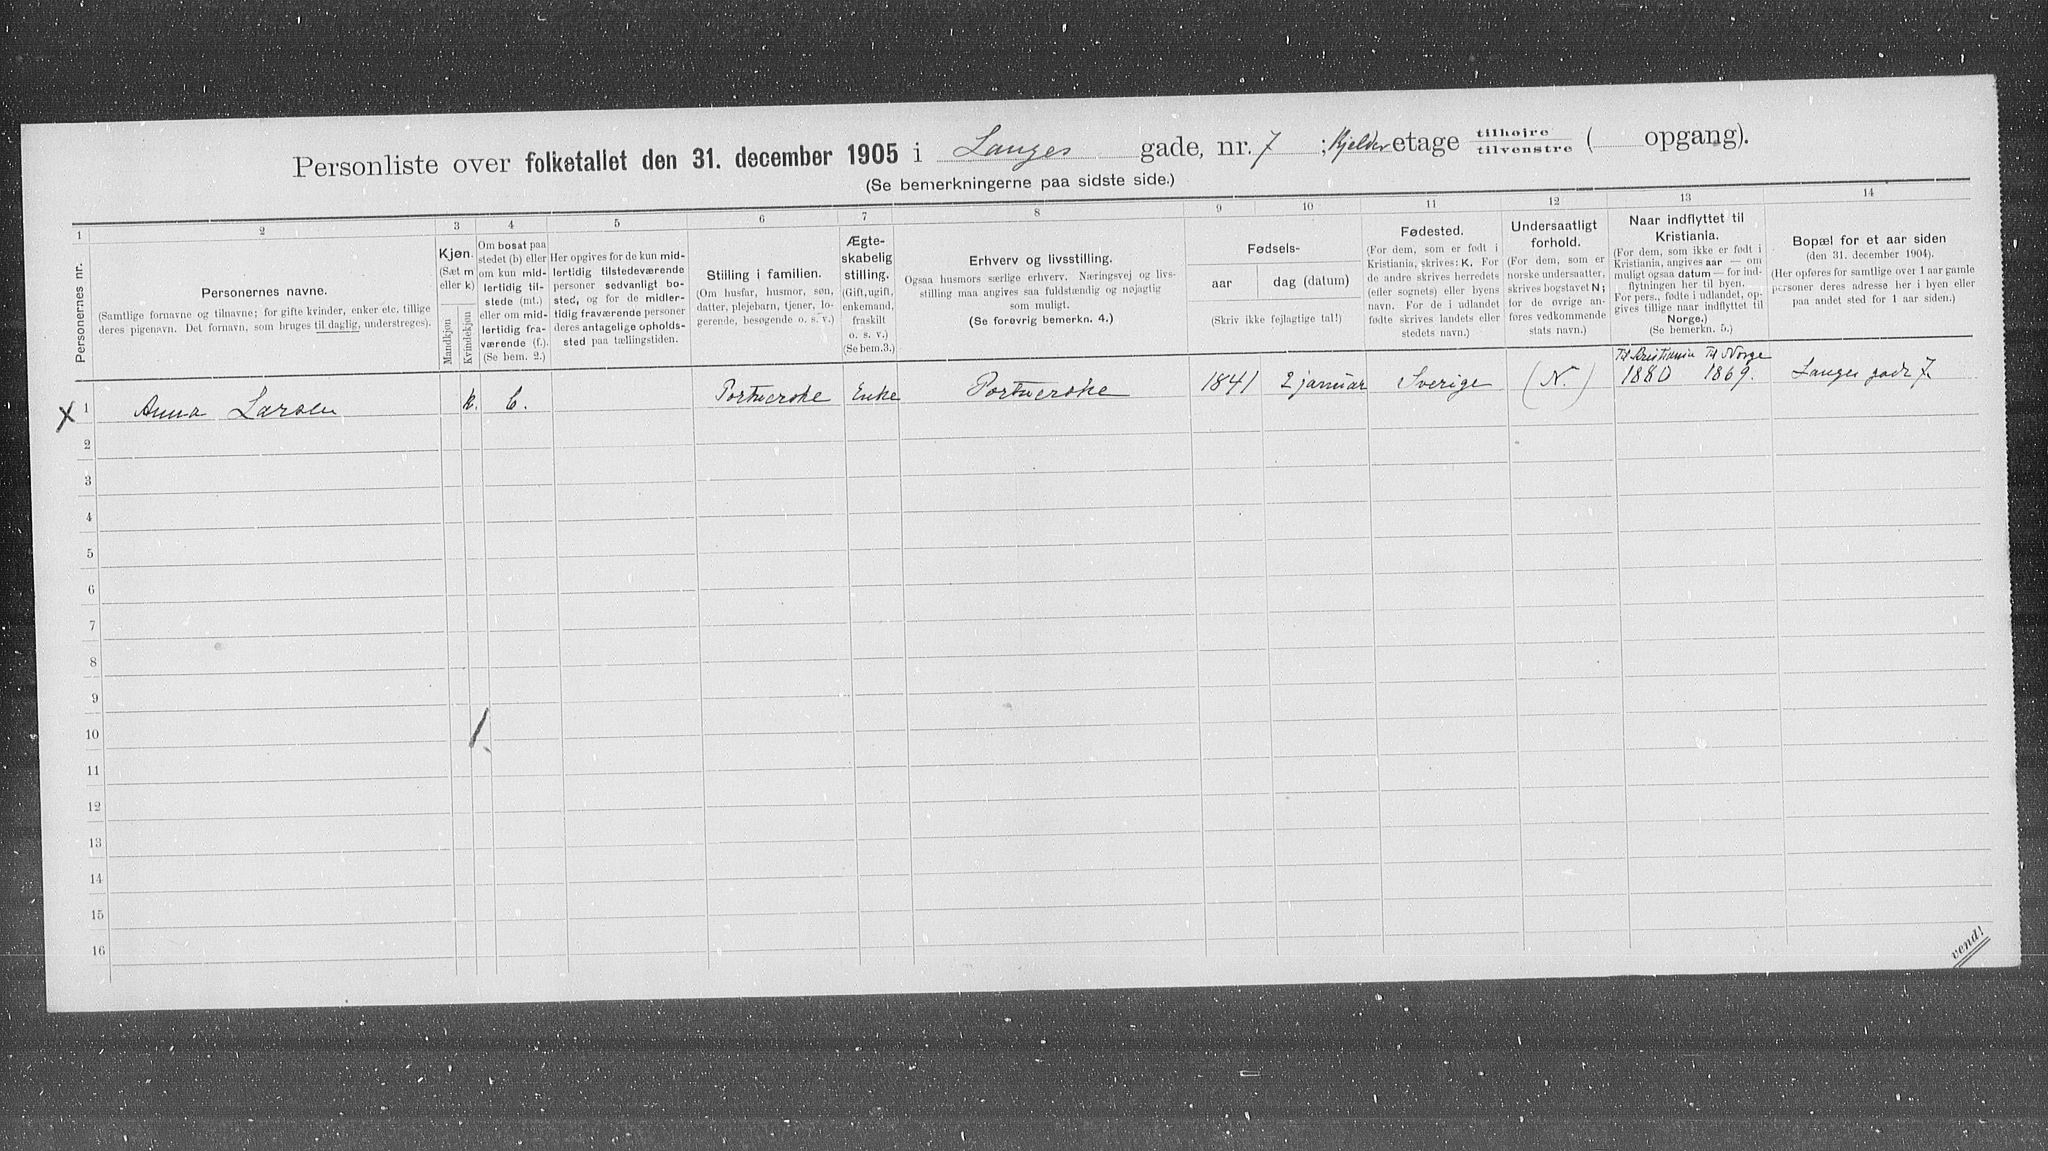 Personliste over folketallet den 31. december 1905 i Langes gade, nr. 7 ; Kjelder etage tilhøjre tilvenstre ( opgang).
(Se bemerkningerne paa sidste side.)
1 2 3 4 5 6 7 8 9 10 11 12 13 14
Personernes nr.
Personernes navne.
(Samtlige fornavne og tilnavne; for gifte kvinder, enker etc. tillige
deres pigenavn. Det fornavn, som bruges til daglig, understreges).
Kjøn.
(Sæt m
eller k)
Mandkjøn
Kvindekjøn
Om bosat paa
stedet (b) eller
om kun mid-
lertidig til-
stede (mt.)
eller om mid-
lertidig fra-
værende (f.).
(Se bem. 2.)
Her opgives for de kun mid-
lertidig tilstedeværende
personer sedvanligt bo-
sted, og for de midler-
tidig fraværende personer
deres antagelige opholds-
sted paa tællingstiden.
Stilling i familien.
(Om husfar, husmor, søn,
datter, plejebarn, tjener, lo-
gerende, besøgende o. s. v.)
Ægte-
skabelig
stilling.
(Gift, ugift,
enkemand,
fraskilt
o. s. v.)
(Se bem. 3.)
Erhverv og livsstilling.
Ogsaa husmors særlige erhverv. Næringsvej og livs-
stilling maa angives saa fuldstændig og nøjagtig
som muligt.
(Se forøvrig bemerkn. 4.)
Fødsels-
aar
dag (datum)
(Skriv ikke fejlagtige tal!)
Fødested.
(For dem, som er født i
Kristiania, skrives: K. For
de andre skrives herredets
(eller sognets) eller byens
navn. For de i udlandet
fødte skrives landets eller
stedets navn.)
Undersaatligt
forhold.
(For dem, som er
norske undersaatter,
skrives bogstavet N;
for de øvrige an-
føres vedkommende
stats navn.)
Naar indflyttet til
Kristiania.
(For dem, som ikke er født i
Kristiania, angives aar — om
muligt ogsaa datum — for ind-
flytningen her til byen.
For pers., fødte i udlandet, op-
gives tillige naar indflyttet til
Norge.)
(Se bemerkn. 5.)
Bopæl for et aar siden
(den 31. december 1904).
(Her opføres for samtlige over 1 aar gamle
personer deres adresse her i byen eller
paa andet sted for 1 aar siden.)
Til Kristiania Til Norge
x 1 Anna Larsen k. b. Portnerske Enke Portnerske 1841 2 januar Sverige (N.) 1880 1869. Langes gade 7
2
3
4
5
6
7
8
9
1.
10
11
12
13
14
15
16
vend!